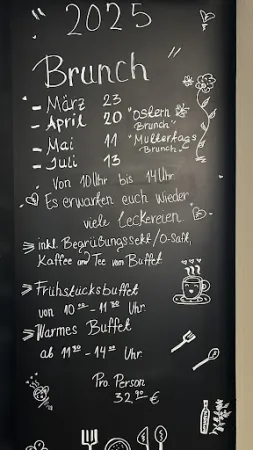 2025
Brunch
- März 23
- April 20 "Ostern Brunch"
- Mai 11 "Muttertags Brunch"
- Juli 13
Von 10 Uhr bis 14 Uhr
Es erwarten euch wieder
viele Leckereien
inkl. Begrüßungssekt/O-Saft,
Kaffee und Tee vom Buffet
Frühstücksbuffet
von 10⁰⁰ - 11³⁰ Uhr
Warmes Buffet
ab 11³⁰ - 14⁰⁰ Uhr
Pro Person
32,⁹⁰ €